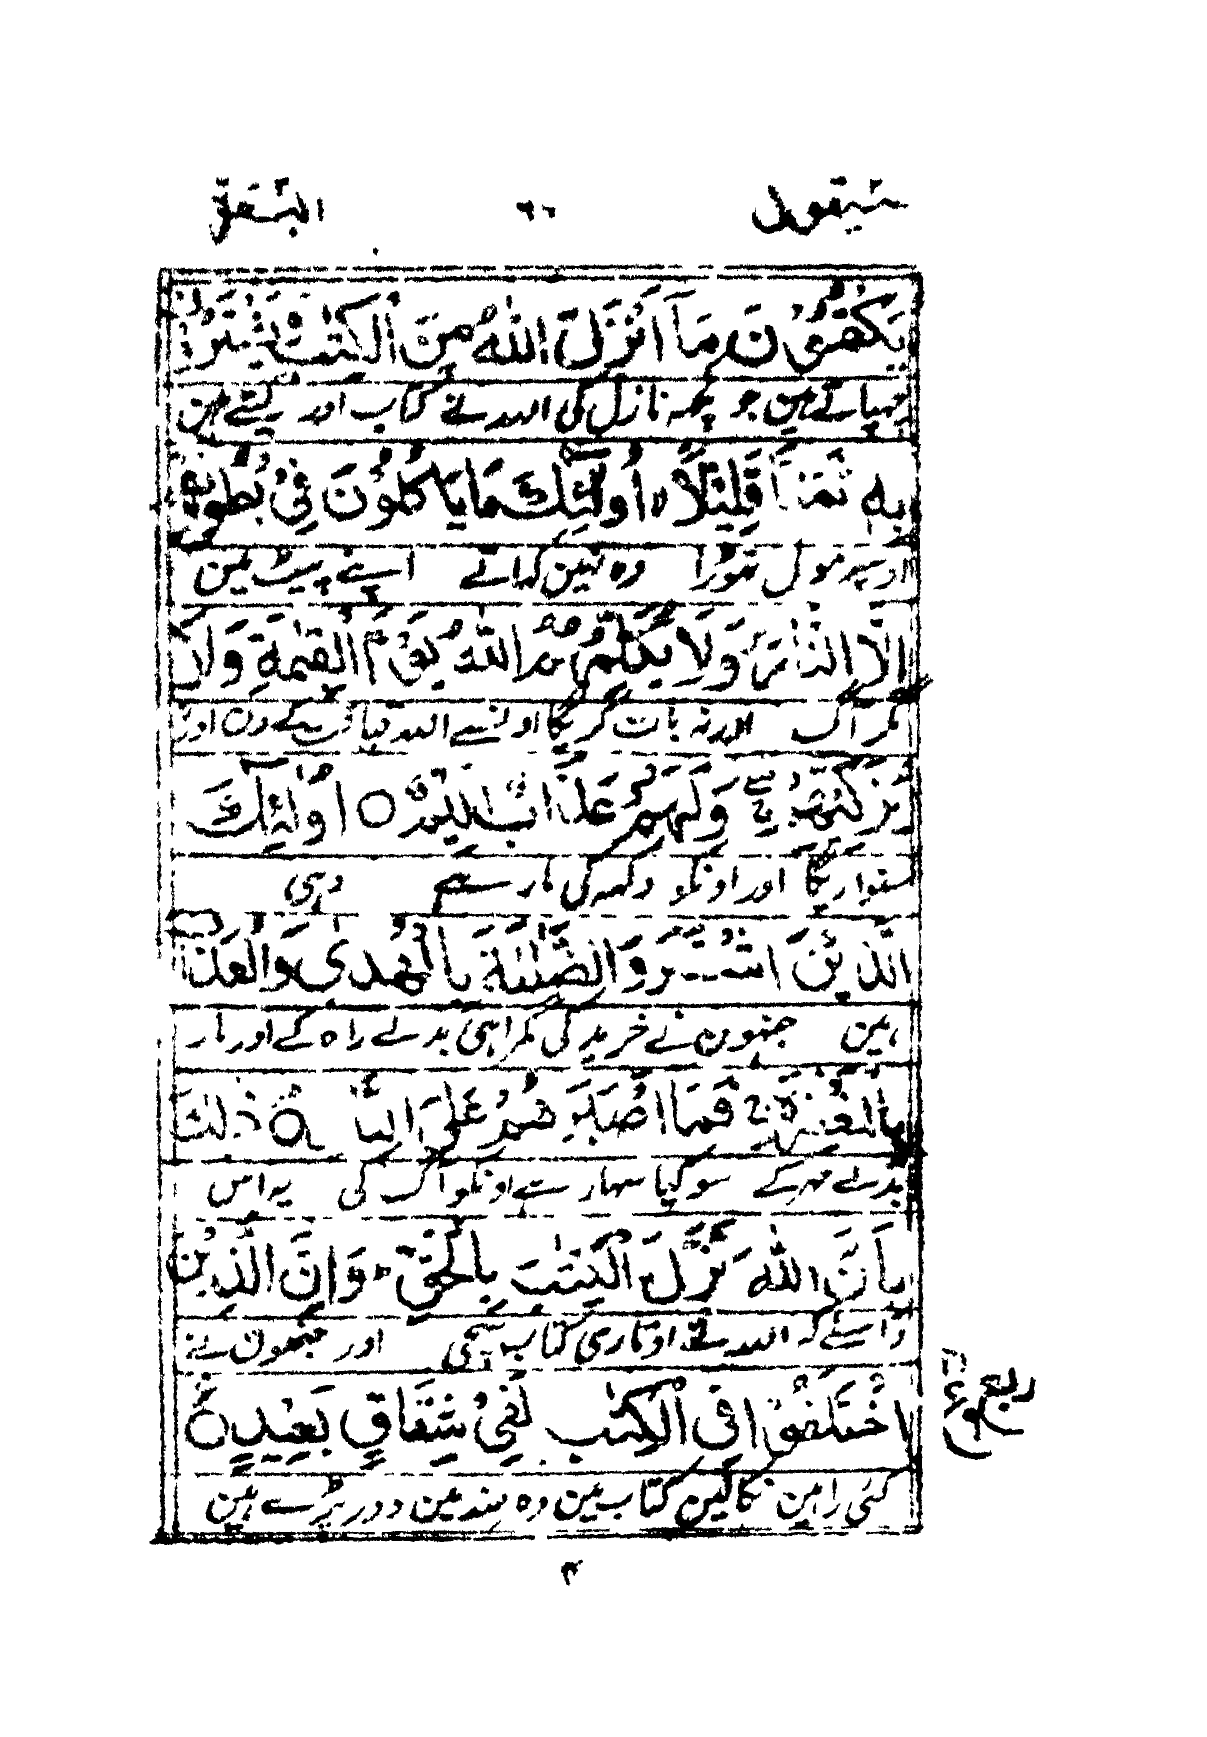 سيقول ٦٠ البقرة
يَكْتُمُوْنَ مَآ اَنْزَلَ اللّٰهُ مِنَ الْكِتٰبِ وَيَشْتَرُوْنَ
چہپاتے ہین جو کچہہ نازل کی اللہ نے کتاب اور لیتے ہین
بِهٖ ثَمَنًا قَلِيْلًا اُولٰٓئِكَ مَا يَاْكُلُوْنَ فِيْ بُطُوْنِهِمْ
اوسپر مول تہوڑا وہ نہین کہاتے اپنے پیٹ مین
اِلَّا النَّارَ وَلَا يُكَلِّمُهُمُ اللّٰهُ يَوْمَ الْقِيٰمَةِ وَلَا
مگر آگ اور نہ بات کریگا اونسے اللہ قیامت کے دن اور نہ
يُزَكِّيْهِمْ وَلَهُمْ عَذَابٌ اَلِيْمٌ ○ اُولٰٓئِكَ
سنواریگا اور اونکو دکہہ کی مار ہے وہی
الَّذِيْنَ اشْتَرَوُا الضَّلٰلَةَ بِالْهُدٰى وَالْعَذَابَ
ہین جنہون نے خرید کی گمراہی بدلے راہ کے اور مار
بِالْمَغْفِرَةِ فَمَآ اَصْبَرَهُمْ عَلَى النَّارِ ○ ذٰلِكَ
بدلے مہر کے سو کیا سہار ہے اونکو آگ کی یہ اس
بِاَنَّ اللّٰهَ نَزَّلَ الْكِتٰبَ بِالْحَقِّ وَاِنَّ الَّذِيْنَ
واسطے کہ اللہ نے اوتاری کتاب سچی اور جنہون نے
اخْتَلَفُوْا فِى الْكِتٰبِ لَفِيْ شِقَاقٍ بَعِيْدٍ ○
کئی راہین نکالین کتاب مین وہ ضد مین دور پڑے ہین
ربع
ع